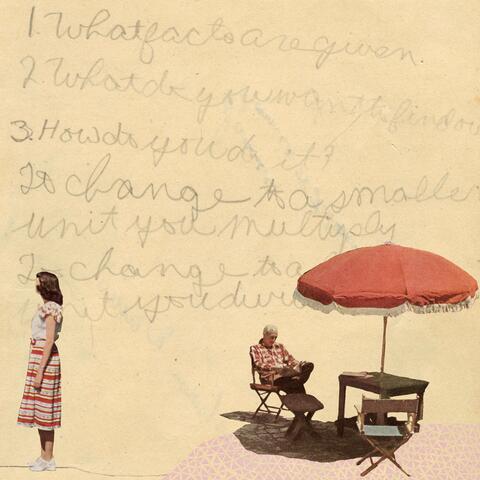 1. What facts are given
2. What do you want to find ou
3. How do you do it?
To change to a smaller
unit you multiply
To change to a
unit you divi